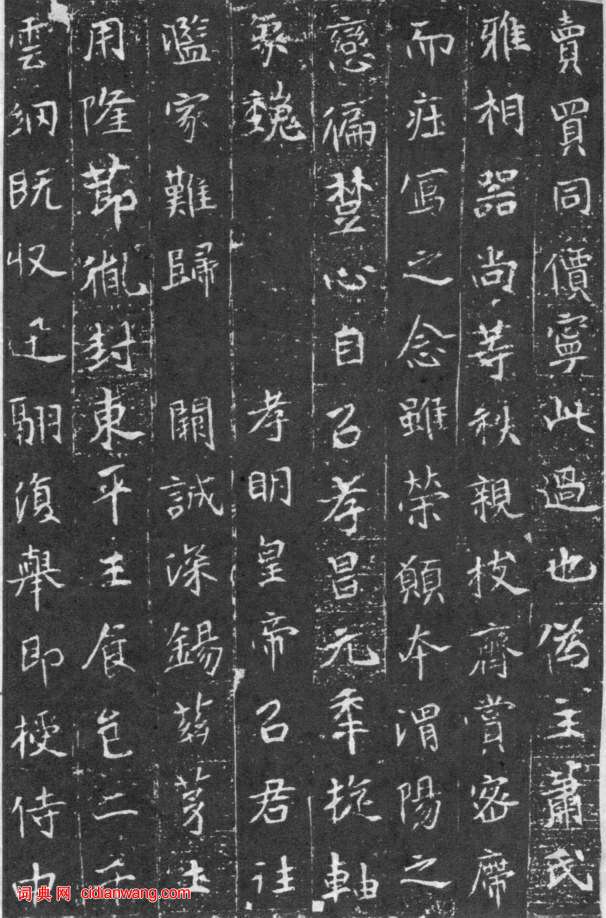 賣買同價寧此過也偽主蕭氏
雅相器尚等秩親枝齊賞密席
而莊寫之念雖榮願本渭陽之
戀偏楚心自以孝昌元年旋軸
象魏 孝明皇帝以君往
濫家難歸 闕誠深錫茲茅土
用隆節胤封東平王食邑二千
雲網既收迅翮復舉即授侍中
词典网 cidianwang.com